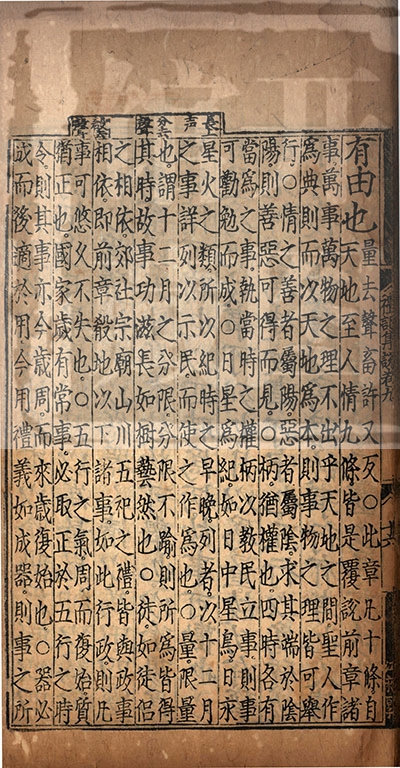 有由也量去聲畜許又反○此章凡十條自
天地至人情九條皆是覆說前章諸
事萬事萬物之理不出乎天地之間聖人作
為典則而以天地為本則事物之理皆可舉
行○情之善者屬陽惡者屬陰求其端於陰
陽則善惡可得而見○柄猶權也四時各有
當為之事執當時之權柄以教民立事則事
可勸勉而成○日星為紀如日中星鳥日永
星火之類所以紀時之早晚列者以十二月
之事詳列以示民而使之作為也○量限量
也謂十二月之分限分限不踰則所為皆得
其時故事功滋長如樹藝然也○徒如徒侶
之相依郊社宗廟山川五祀之禮皆與政事
相依即前章殽地以下諸事如此行政則凡
事可悠久不失也○五行之氣周而復始質
猶正也國家歲有常事必取正於五行之時
令則其事亦今歲周而來歲復始也○器必
成而後適於用今用禮義如成器則事之所